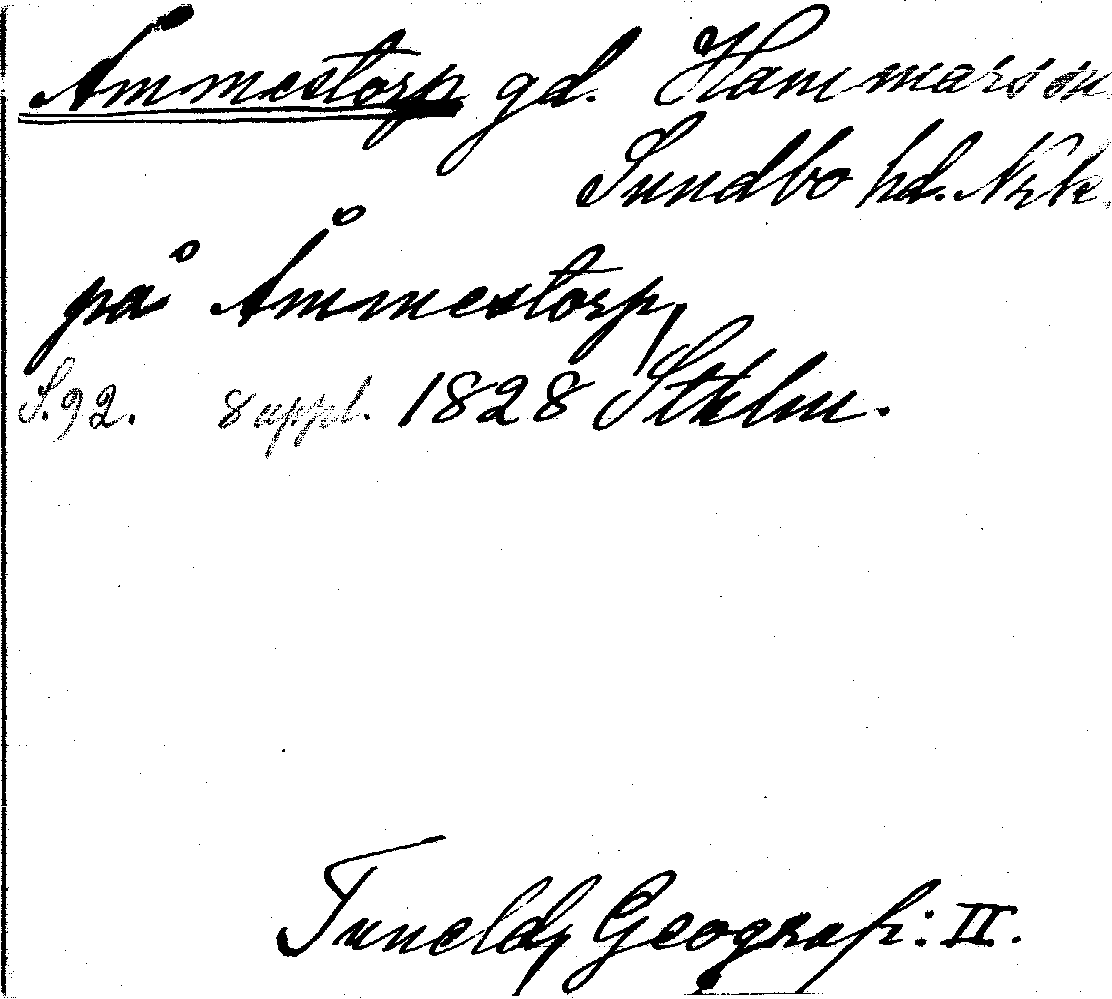 Åmmestorp gd. Hammars sn.
Sundbo hd. Nrk.
på Åmmestorp,
S.92. 8 uppl. 1828 Sthlm.
Tunelds Geografi: II.